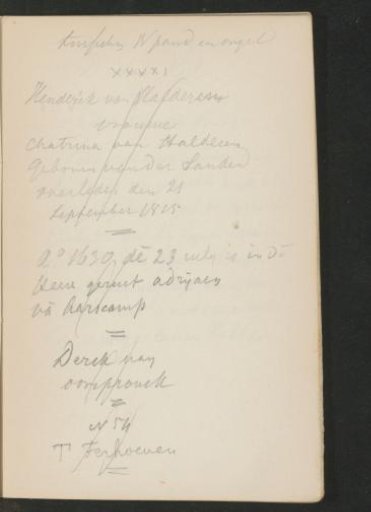 tusschen N pand en orgel
XXXXI
Henderik van
vrouwe
Chatrina van Halderen
Geboren van der Sanden
overleden den 21
September 1815
Aº 1630, dē 23 july is in dē
Heere gerust adrijaen
vā Aarscamp
Derck van
oorspronck
N 54
T Terhoeven